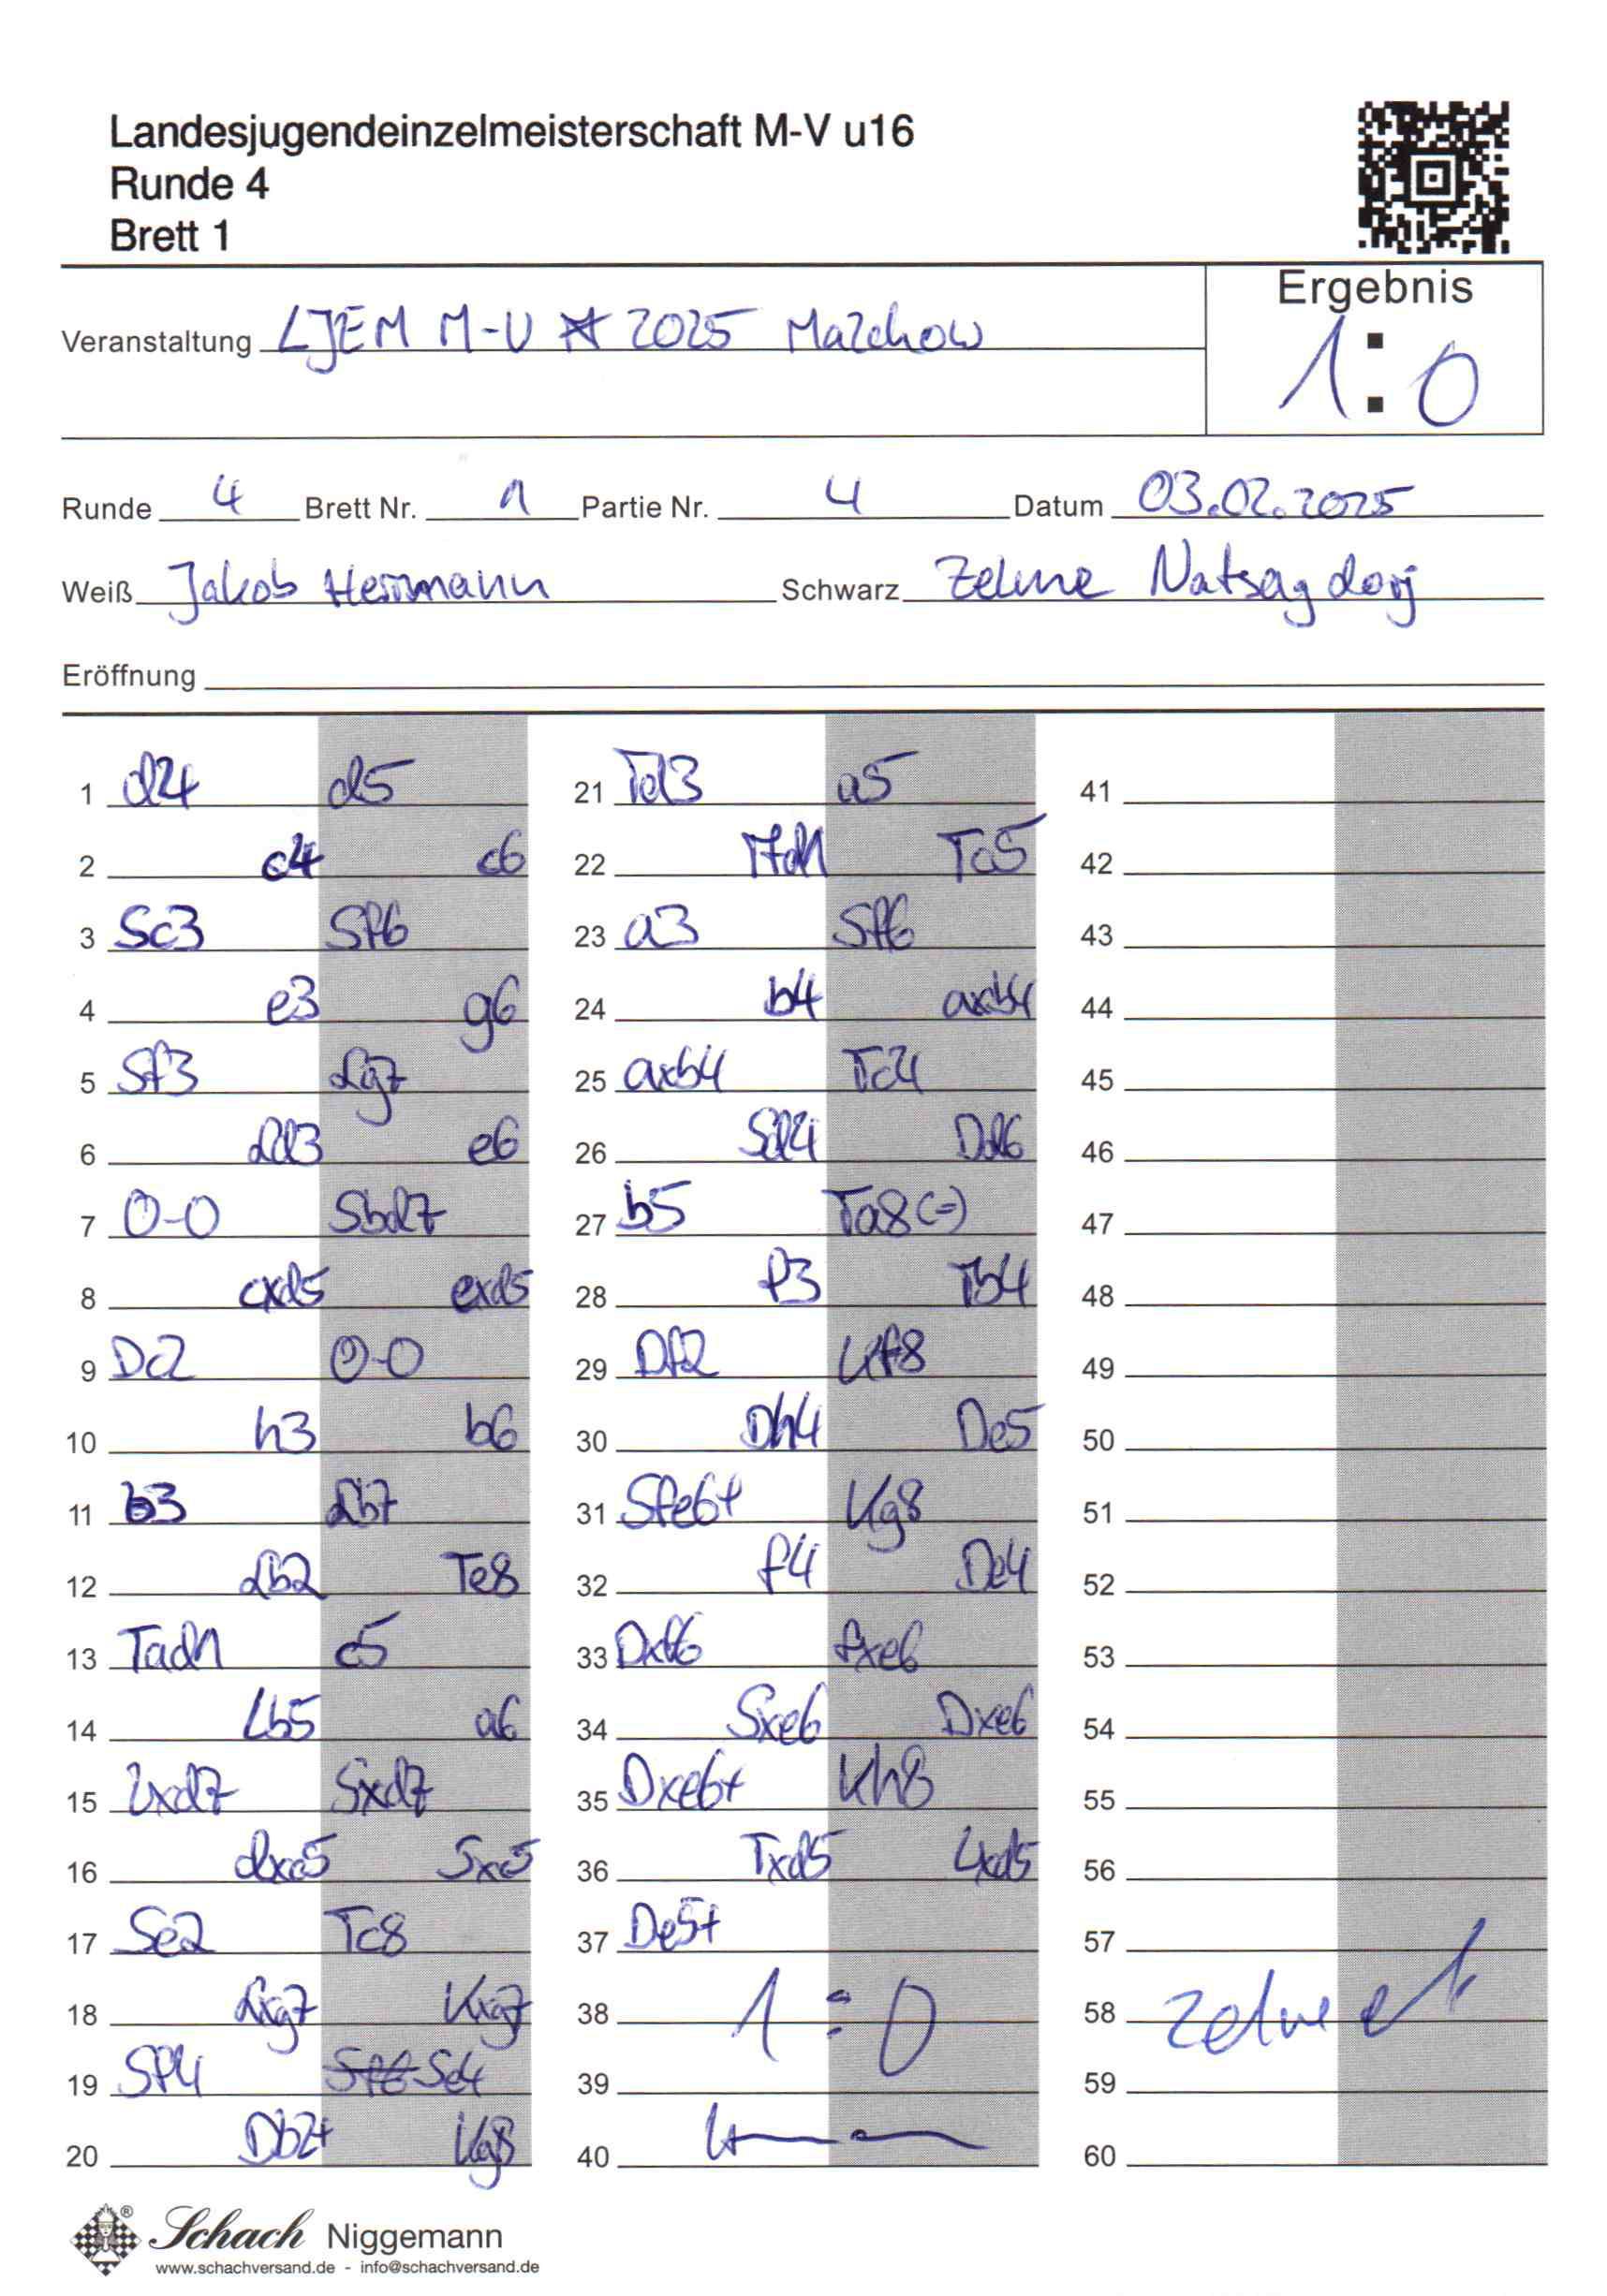 Landesjugendeinzelmeisterschaft M-V u16
Runde 4
Brett 1
Ergebnis
1:0
Veranstaltung LJEM M-V 2025 Malchow
Runde 4 Brett Nr. 1 Partie Nr. 4 Datum 03.02.2025
Weiß Jakob Herrmann Schwarz Zelme Natsagdorj
Eröffnung
1 d4 d5
2 c4 c6
3 Sc3 Sf6
4 e3 g6
5 Sf3 Lg7
6 Ld3 e6
7 0-0 Sbd7
8 cxd5 exd5
9 Dc2 0-0
10 h3 b6
11 b3 Lb7
12 Lb2 Te8
13 Tad1 c5
14 Lb5 a6
15 Lxd7 Sxd7
16 dxc5 Sxc5
17 Se2 Tc8
18 Lxg7 Kxg7
19 Sf4 Sf6 Se4
20 Db2+ Kg8
21 Td3 a5
22 Tfd1 Tc5
23 a3 Sf6
24 b4 axb4
25 axb4 Tc4
26 Sd4 Dd6
27 b5 Ta8(=)
28 f3 Tb4
29 Df2 Kf8
30 Dh4 De5
31 Sfe6+ Kg8
32 f4 De4
33 Dxf6 fxe6
34 Sxe6 Dxe6
35 Dxe6+ Kh8
36 Txd5 Lxd5
37 De5+
38 1:0
39
40
41
42
43
44
45
46
47
48
49
50
51
52
53
54
55
56
57
58
59
60
Schach Niggemann
www.schachversand.de - info@schachversand.de